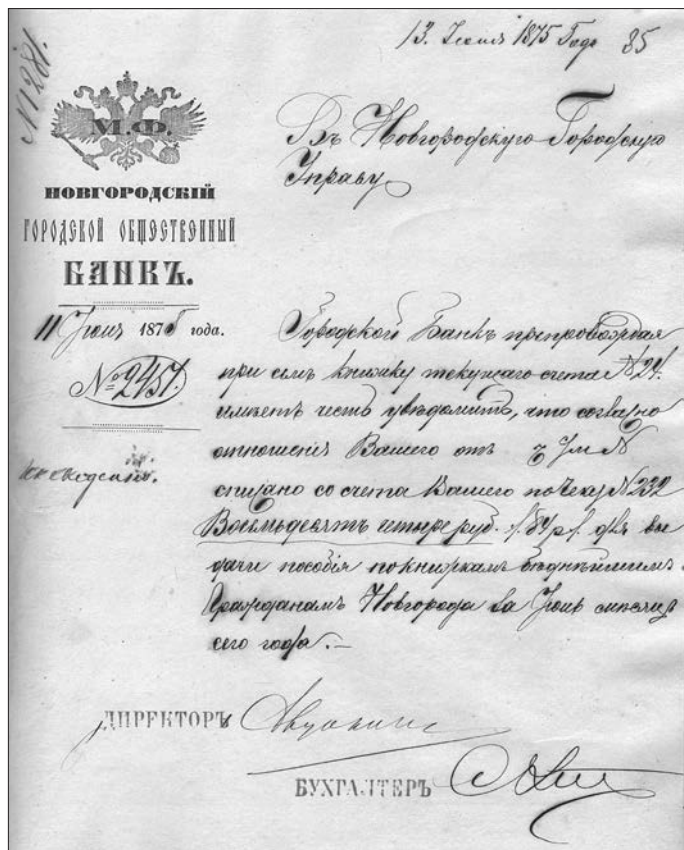 13. Іюня 1875 Года 85
№ 1281.
М.Ф.
НОВГОРОДСКІЙ
ГОРОДСКОЙ ОБЩЕСТВЕННЫЙ
БАНКЪ.
11 Іюня 1875 года.
№ 2457.
Въ Новгородскую Городскую
Управу
Городской Банкъ препровождая
при семъ книжку текущаго счета № 24.
имѣетъ честь увѣдомить, что согласно
отношенія Вашего отъ 7 Іюня №
списано со счета Вашего по чеку № 232
Восемьдесятъ четыре руб. /. 84 р /. для вы
дачи пособія по книжкамъ бѣднѣйшимъ
Гражданамъ Новгорода за Іюнь мѣсяцъ
сего года. —
ДИРЕКТОРЪ
БУХГАЛТЕРЪ